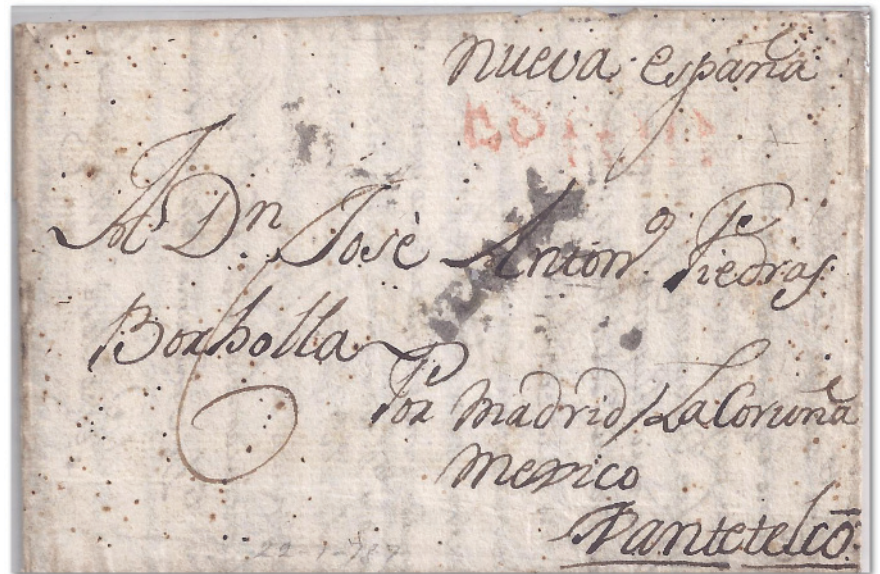 nueva españa
A Dn José Anton.º Piedras
Borbolla
Por Madrid / La Coruña
Mexico
Pantetelcō
22-1-787